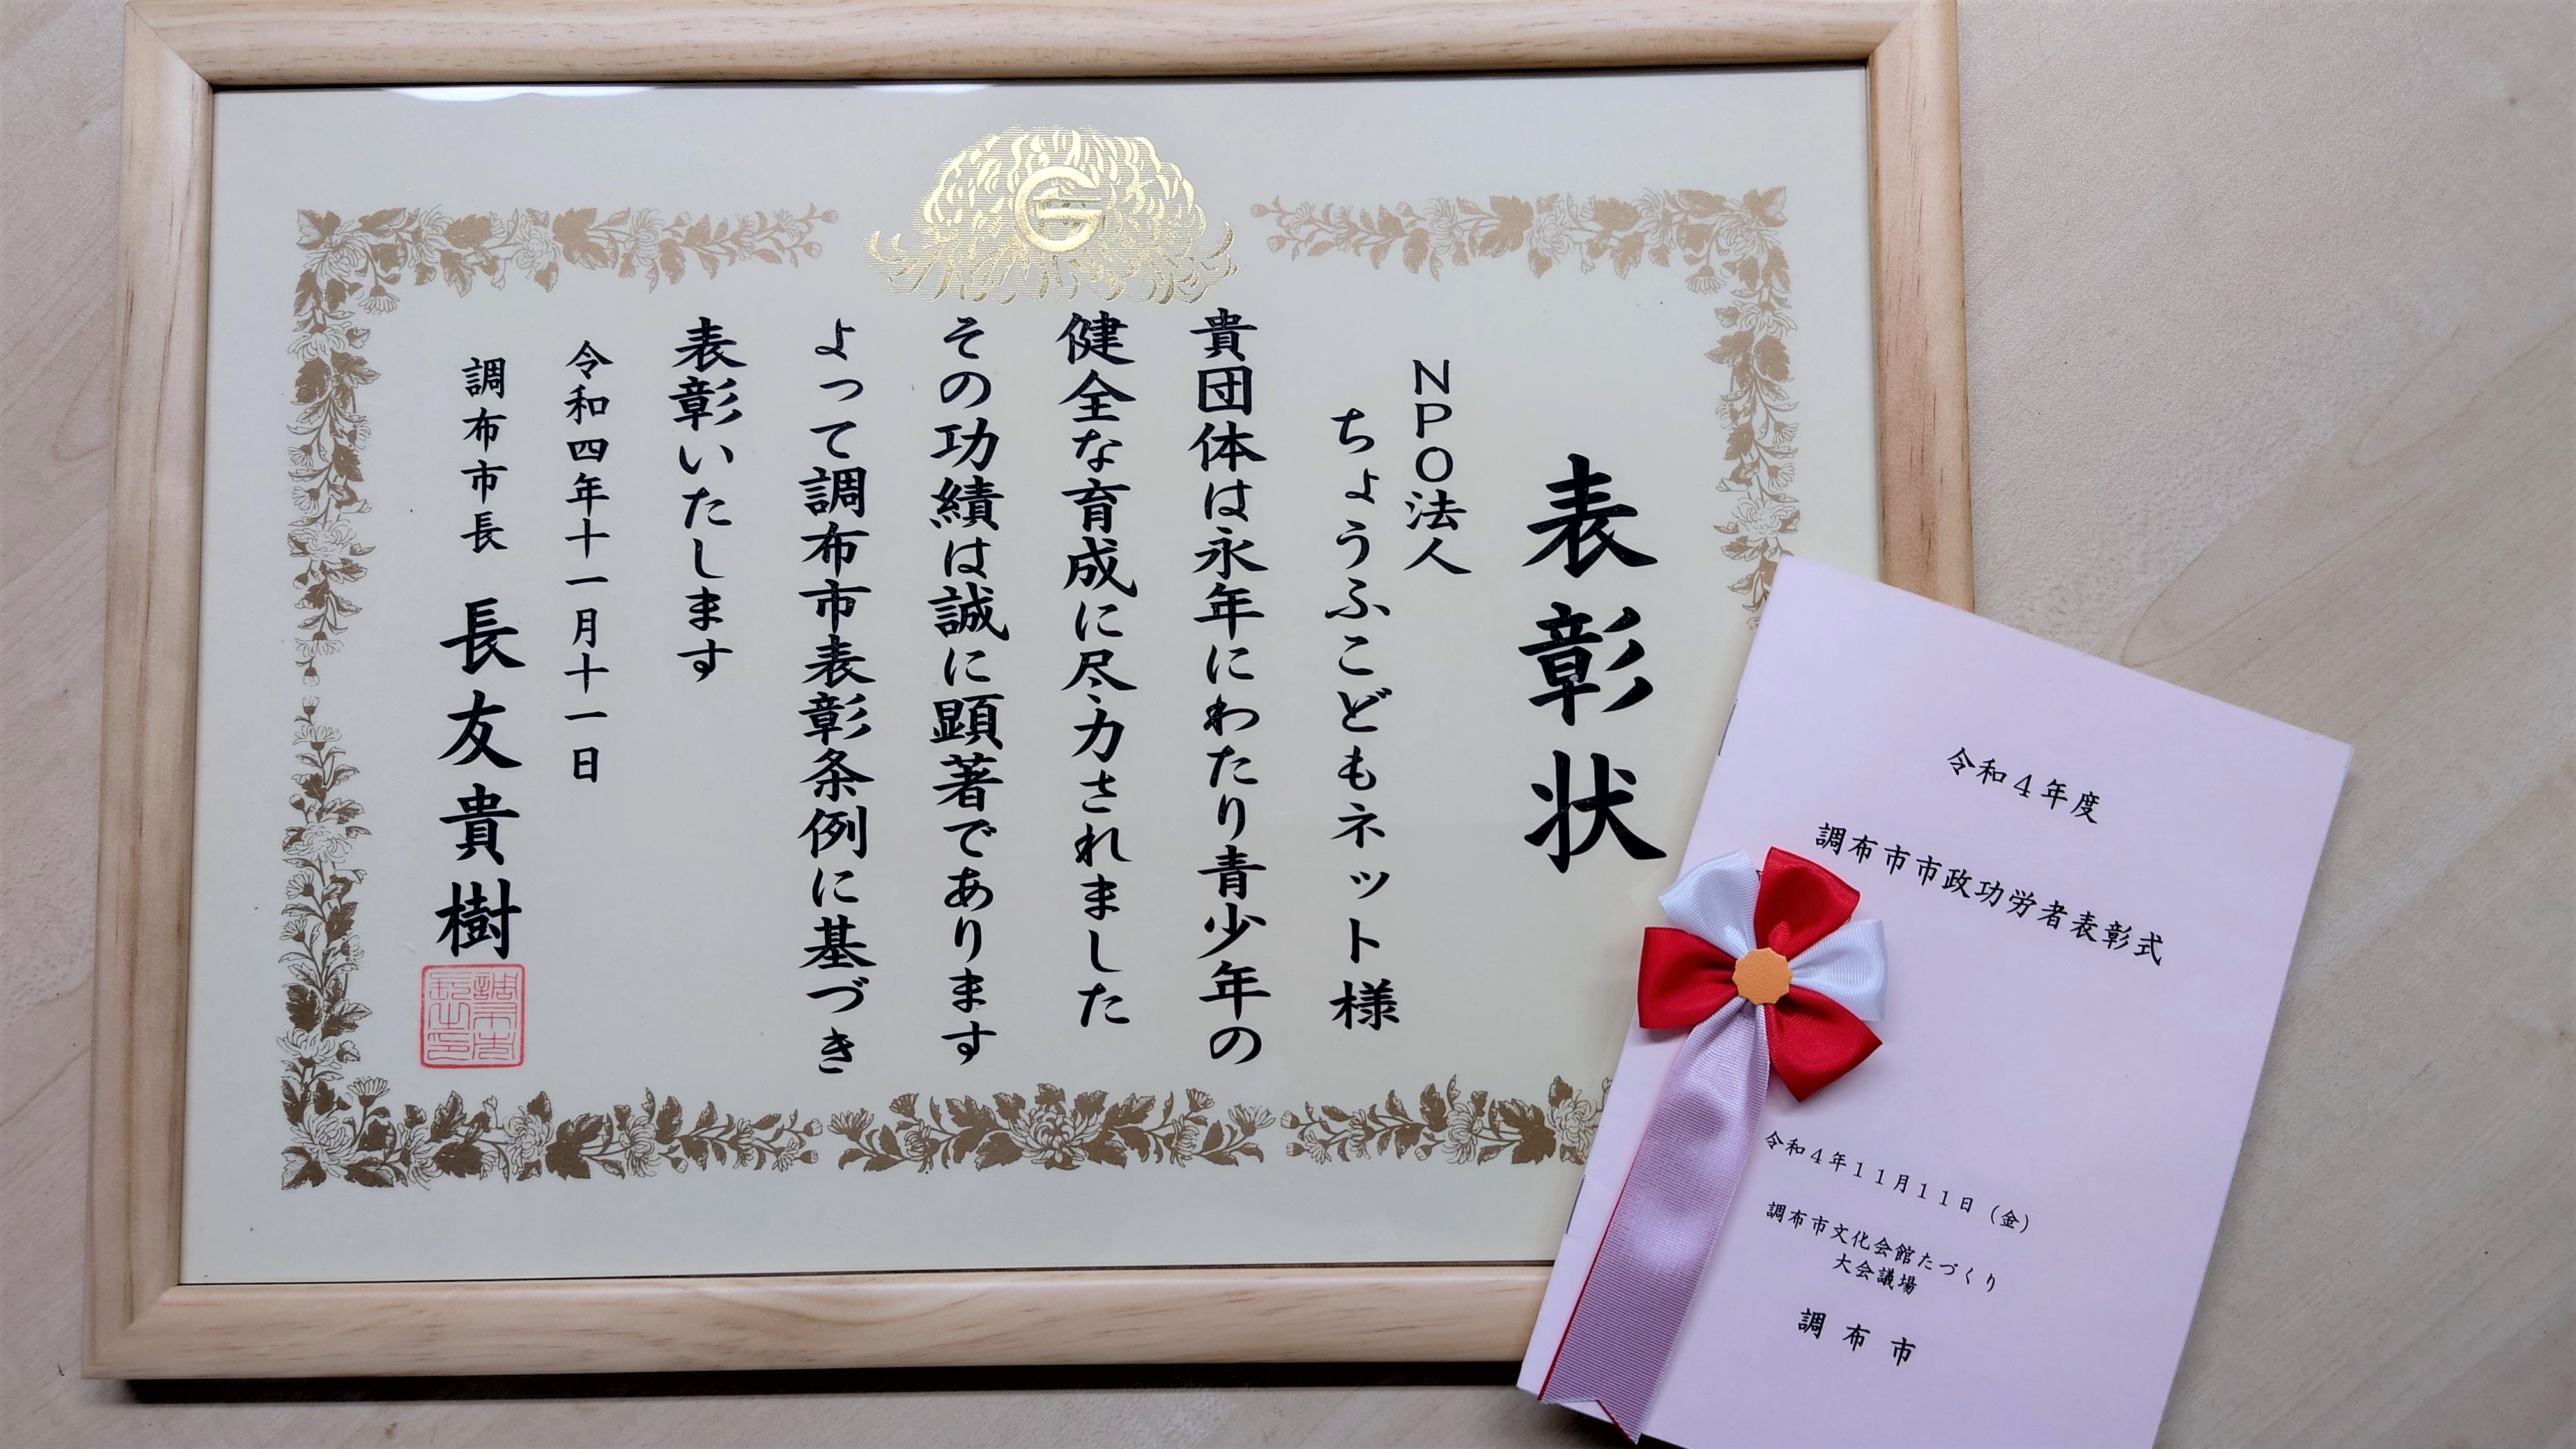 表彰状
NPO法人
ちょうふこどもネット様
貴団体は永年にわたり青少年の
健全な育成に尽力されました
その功績は誠に顕著であります
よって調布市表彰条例に基づき
表彰いたします
令和四年十一月十一日
調布市長 長友貴樹
令和4年度
調布市市政功労者表彰式
令和4年11月11日(金)
調布市文化会館たづくり
大会議場
調布市